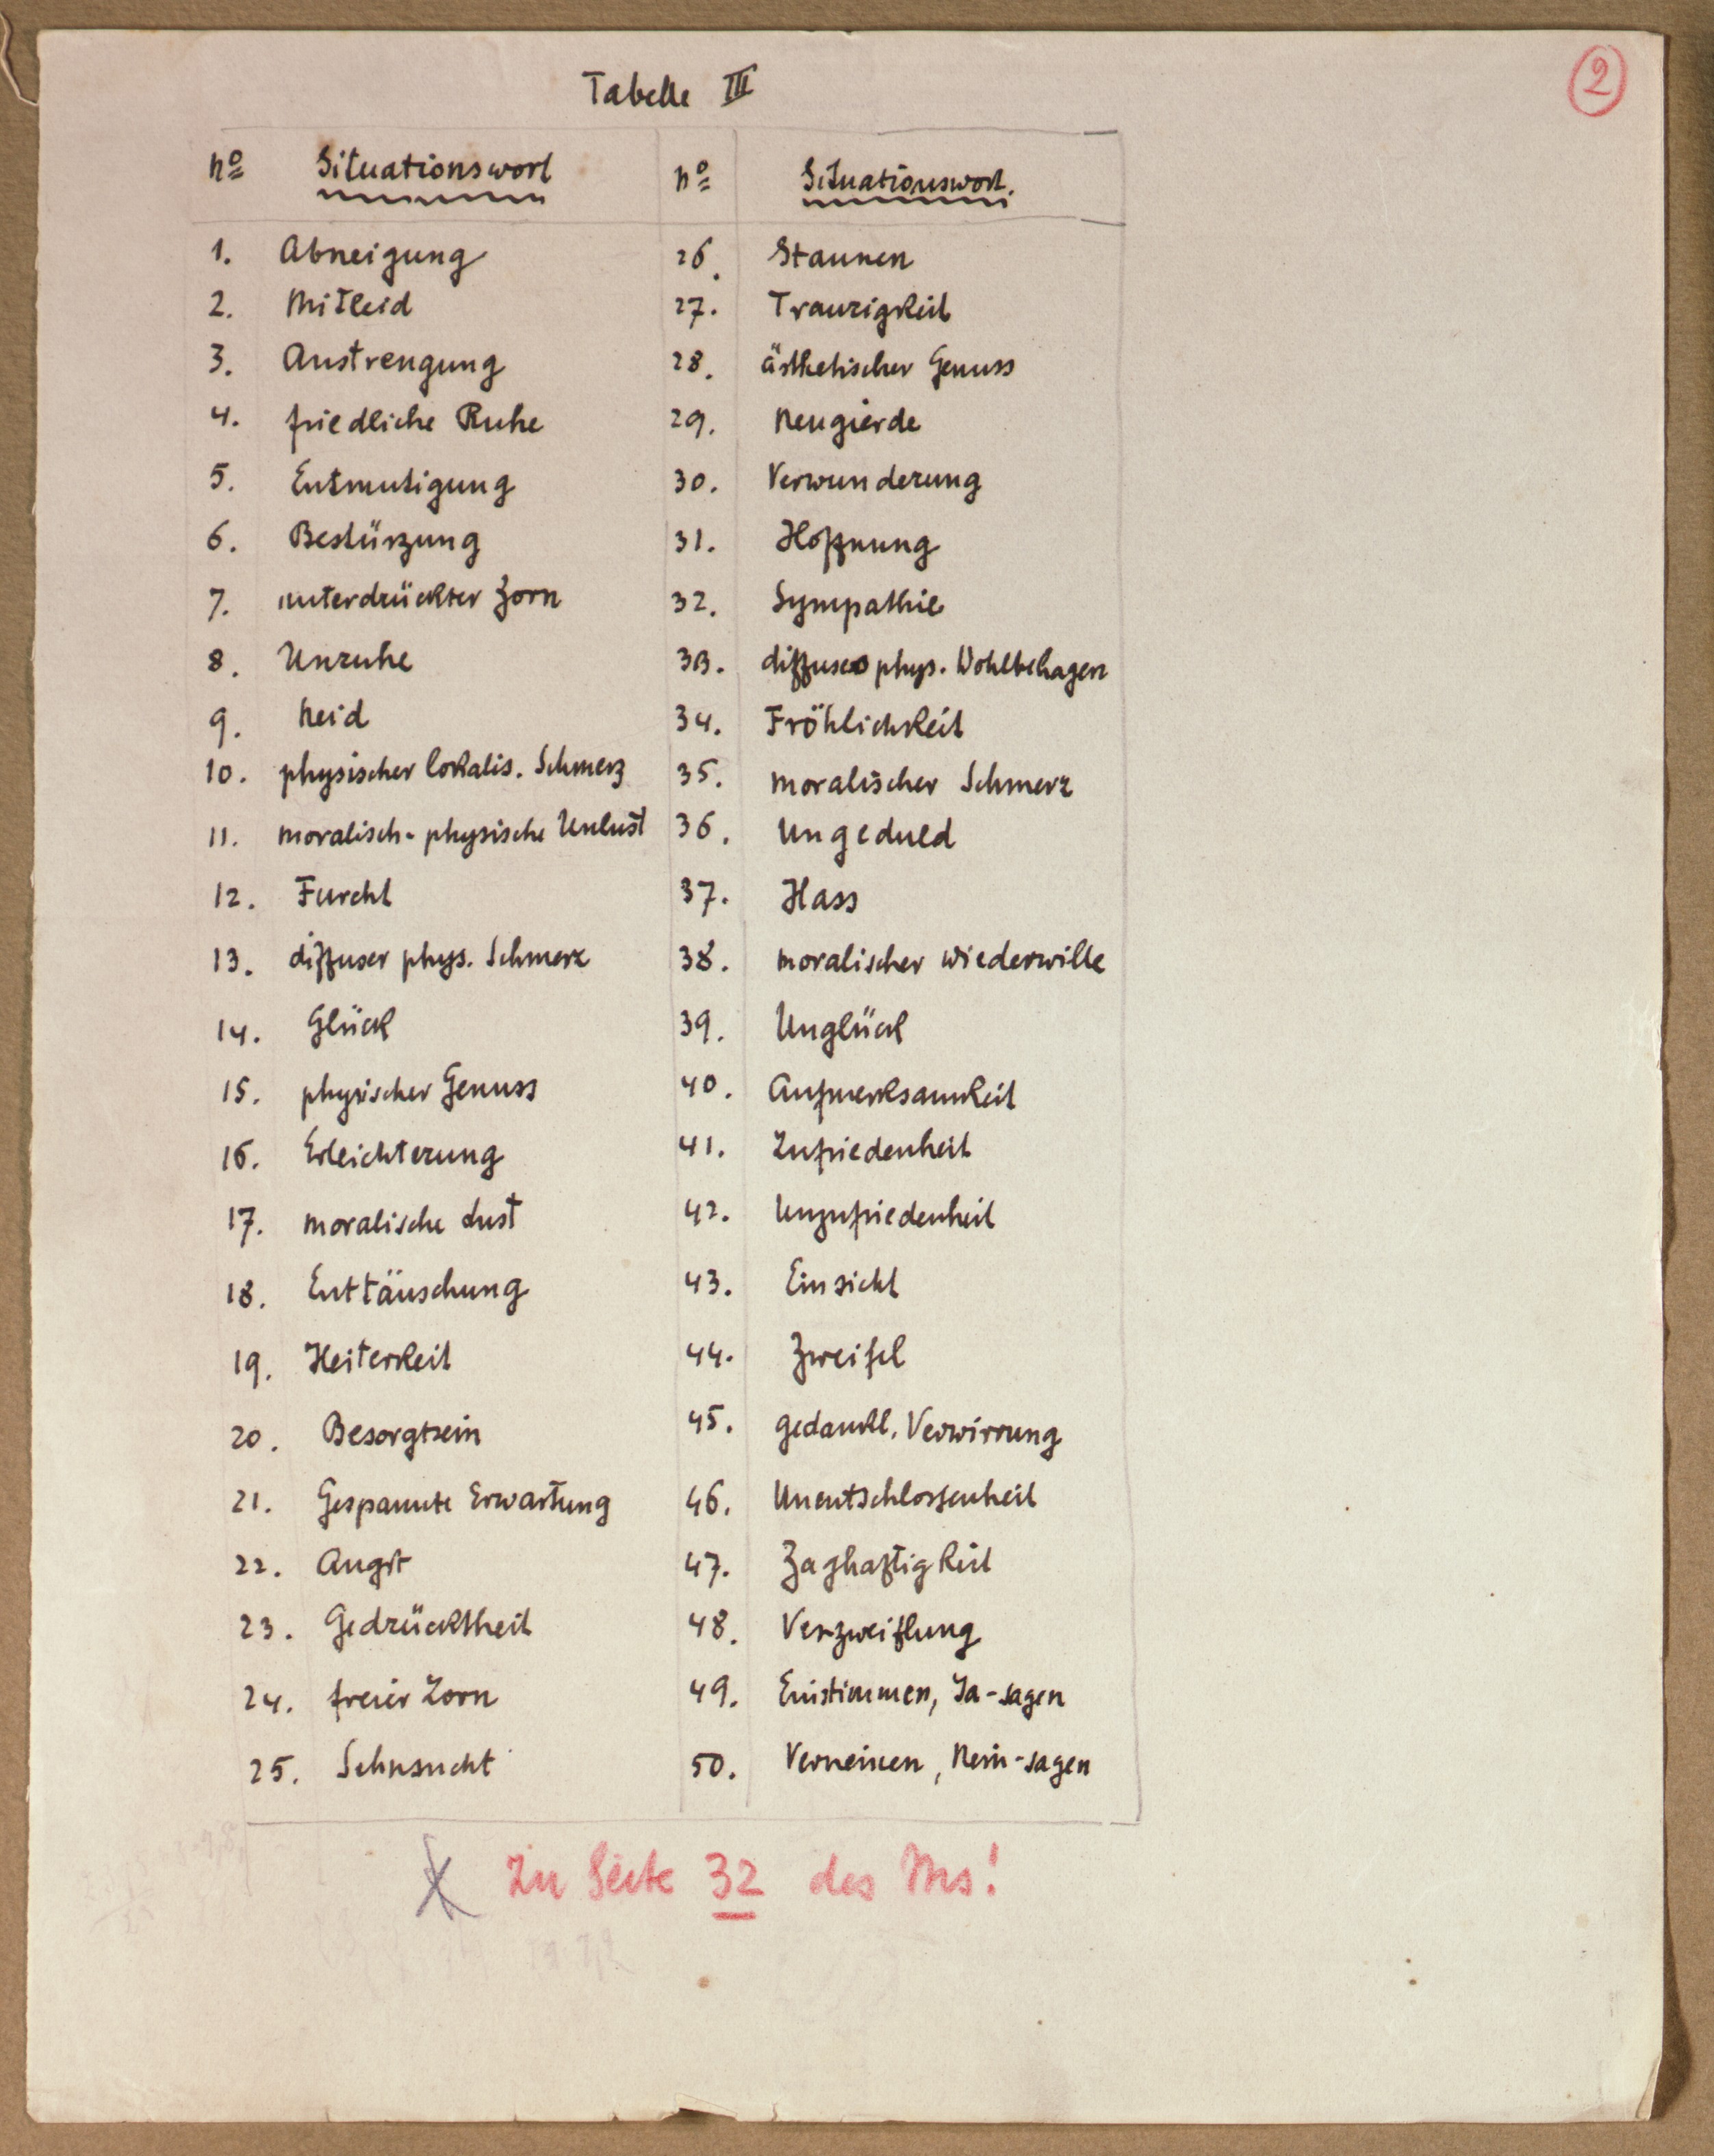 2
Tabelle III
No Situationswort No Situationswort.
1. Abneigung 26. Staunen
2. Mitleid 27. Traurigkeit
3. Anstrengung 28. ästhetischer Genuss
4. friedliche Ruhe 29. Neugierde
5. Entmutigung 30. Verwunderung
6. Bestürzung 31. Hoffnung
7. unterdrückter Zorn 32. Sympathie
8. Unruhe 33. diffuses phys. Wohlbehagen
9. Neid 34. Fröhlichkeit
10. physischer lokalis. Schmerz 35. moralischer Schmerz
11. moralisch-physische Unlust 36. Ungeduld
12. Furcht 37. Hass
13. diffuser phys. Schmerz 38. moralischer Wiederwille
14. Glück 39. Unglück
15. physischer Genuss 40. Aufmerksamkeit
16. Erleichterung 41. Zufriedenheit
17. moralische Lust 42. Unzufriedenheit
18. Enttäuschung 43. Einsicht
19. Heiterkeit 44. Zweifel
20. Besorgtsein 45. gedankl. Verwirrung
21. Gespannte Erwartung 46. Unentschlossenheit
22. Angst 47. Zaghaftigkeit
23. Gedrücktheit 48. Verzweiflung
24. freier Zorn 49. Einstimmen, Ja-sagen
25. Sehnsucht 50. Verneinen, Nein-sagen
Zu Seite 32 des Ms!